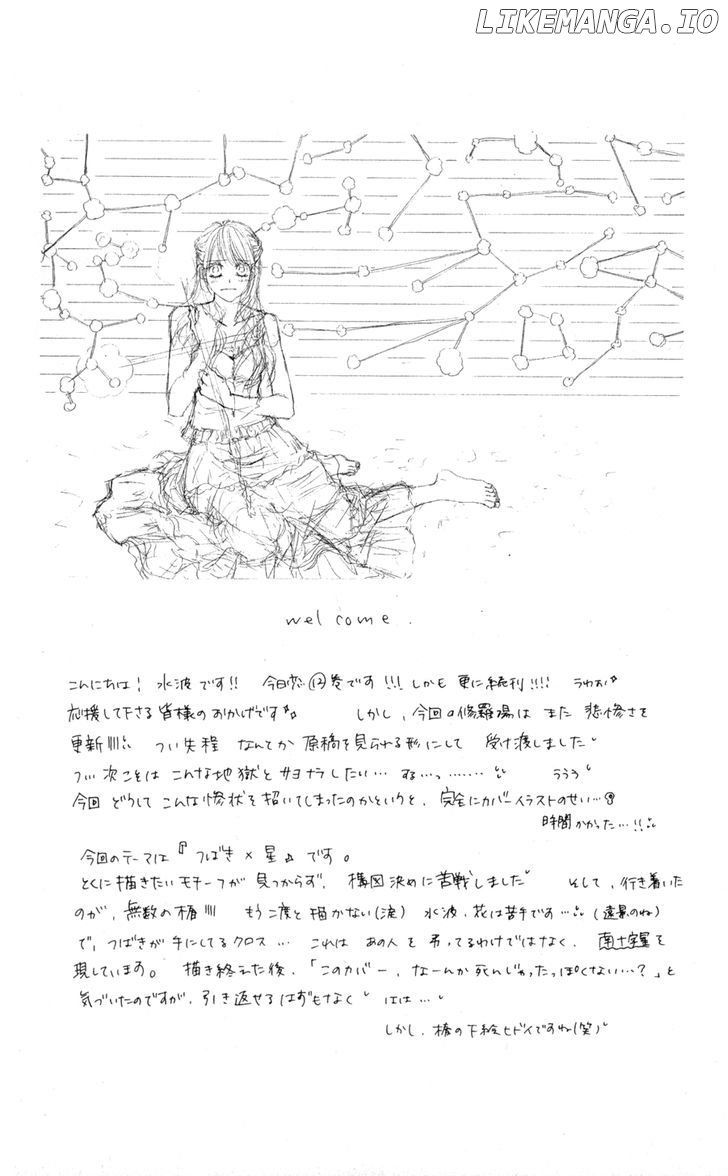 LIKEMANGA.IO
welcome.
こんにちは! 水波です!! 今日恋⑫巻です!!! しかも 更に続刊!!!! うわぉ
応援して下さる皆様のおかげです しかし、今回の修羅場は また 悲惨さを
更新 つい先程 なんとか 原稿を見られる形にして 受け渡しました
つ… 次こそは こんな地獄と サヨナラしたい… する…っ…… ううう
今回 どうして こんな惨状を招いてしまったのかというと、完全にカバーイラストのせい…
時間かかった…!!
今回のテーマは『つばき×星』です。
とくに描きたいモチーフが見つからず、構図決めに苦戦しました そして、行き着いた
のが、無数の椿 もう二度と描かない(涙) 水波、花は苦手です… (遠景のね)
で、つばきが手にしてるクロス… これは あの人を 弔ってるわけではなく、南十字星を
現しています。 描き終えた後、「このカバー、なーんか死んじゃったっぽくない…?」と
気づいたのですが、引き返せるはずもなく はは…
しかし、椿の下絵ヒドイですね(笑)